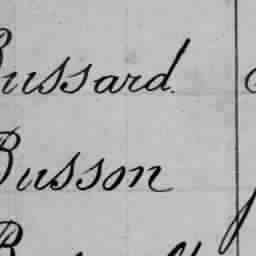 Bussard.
Busson